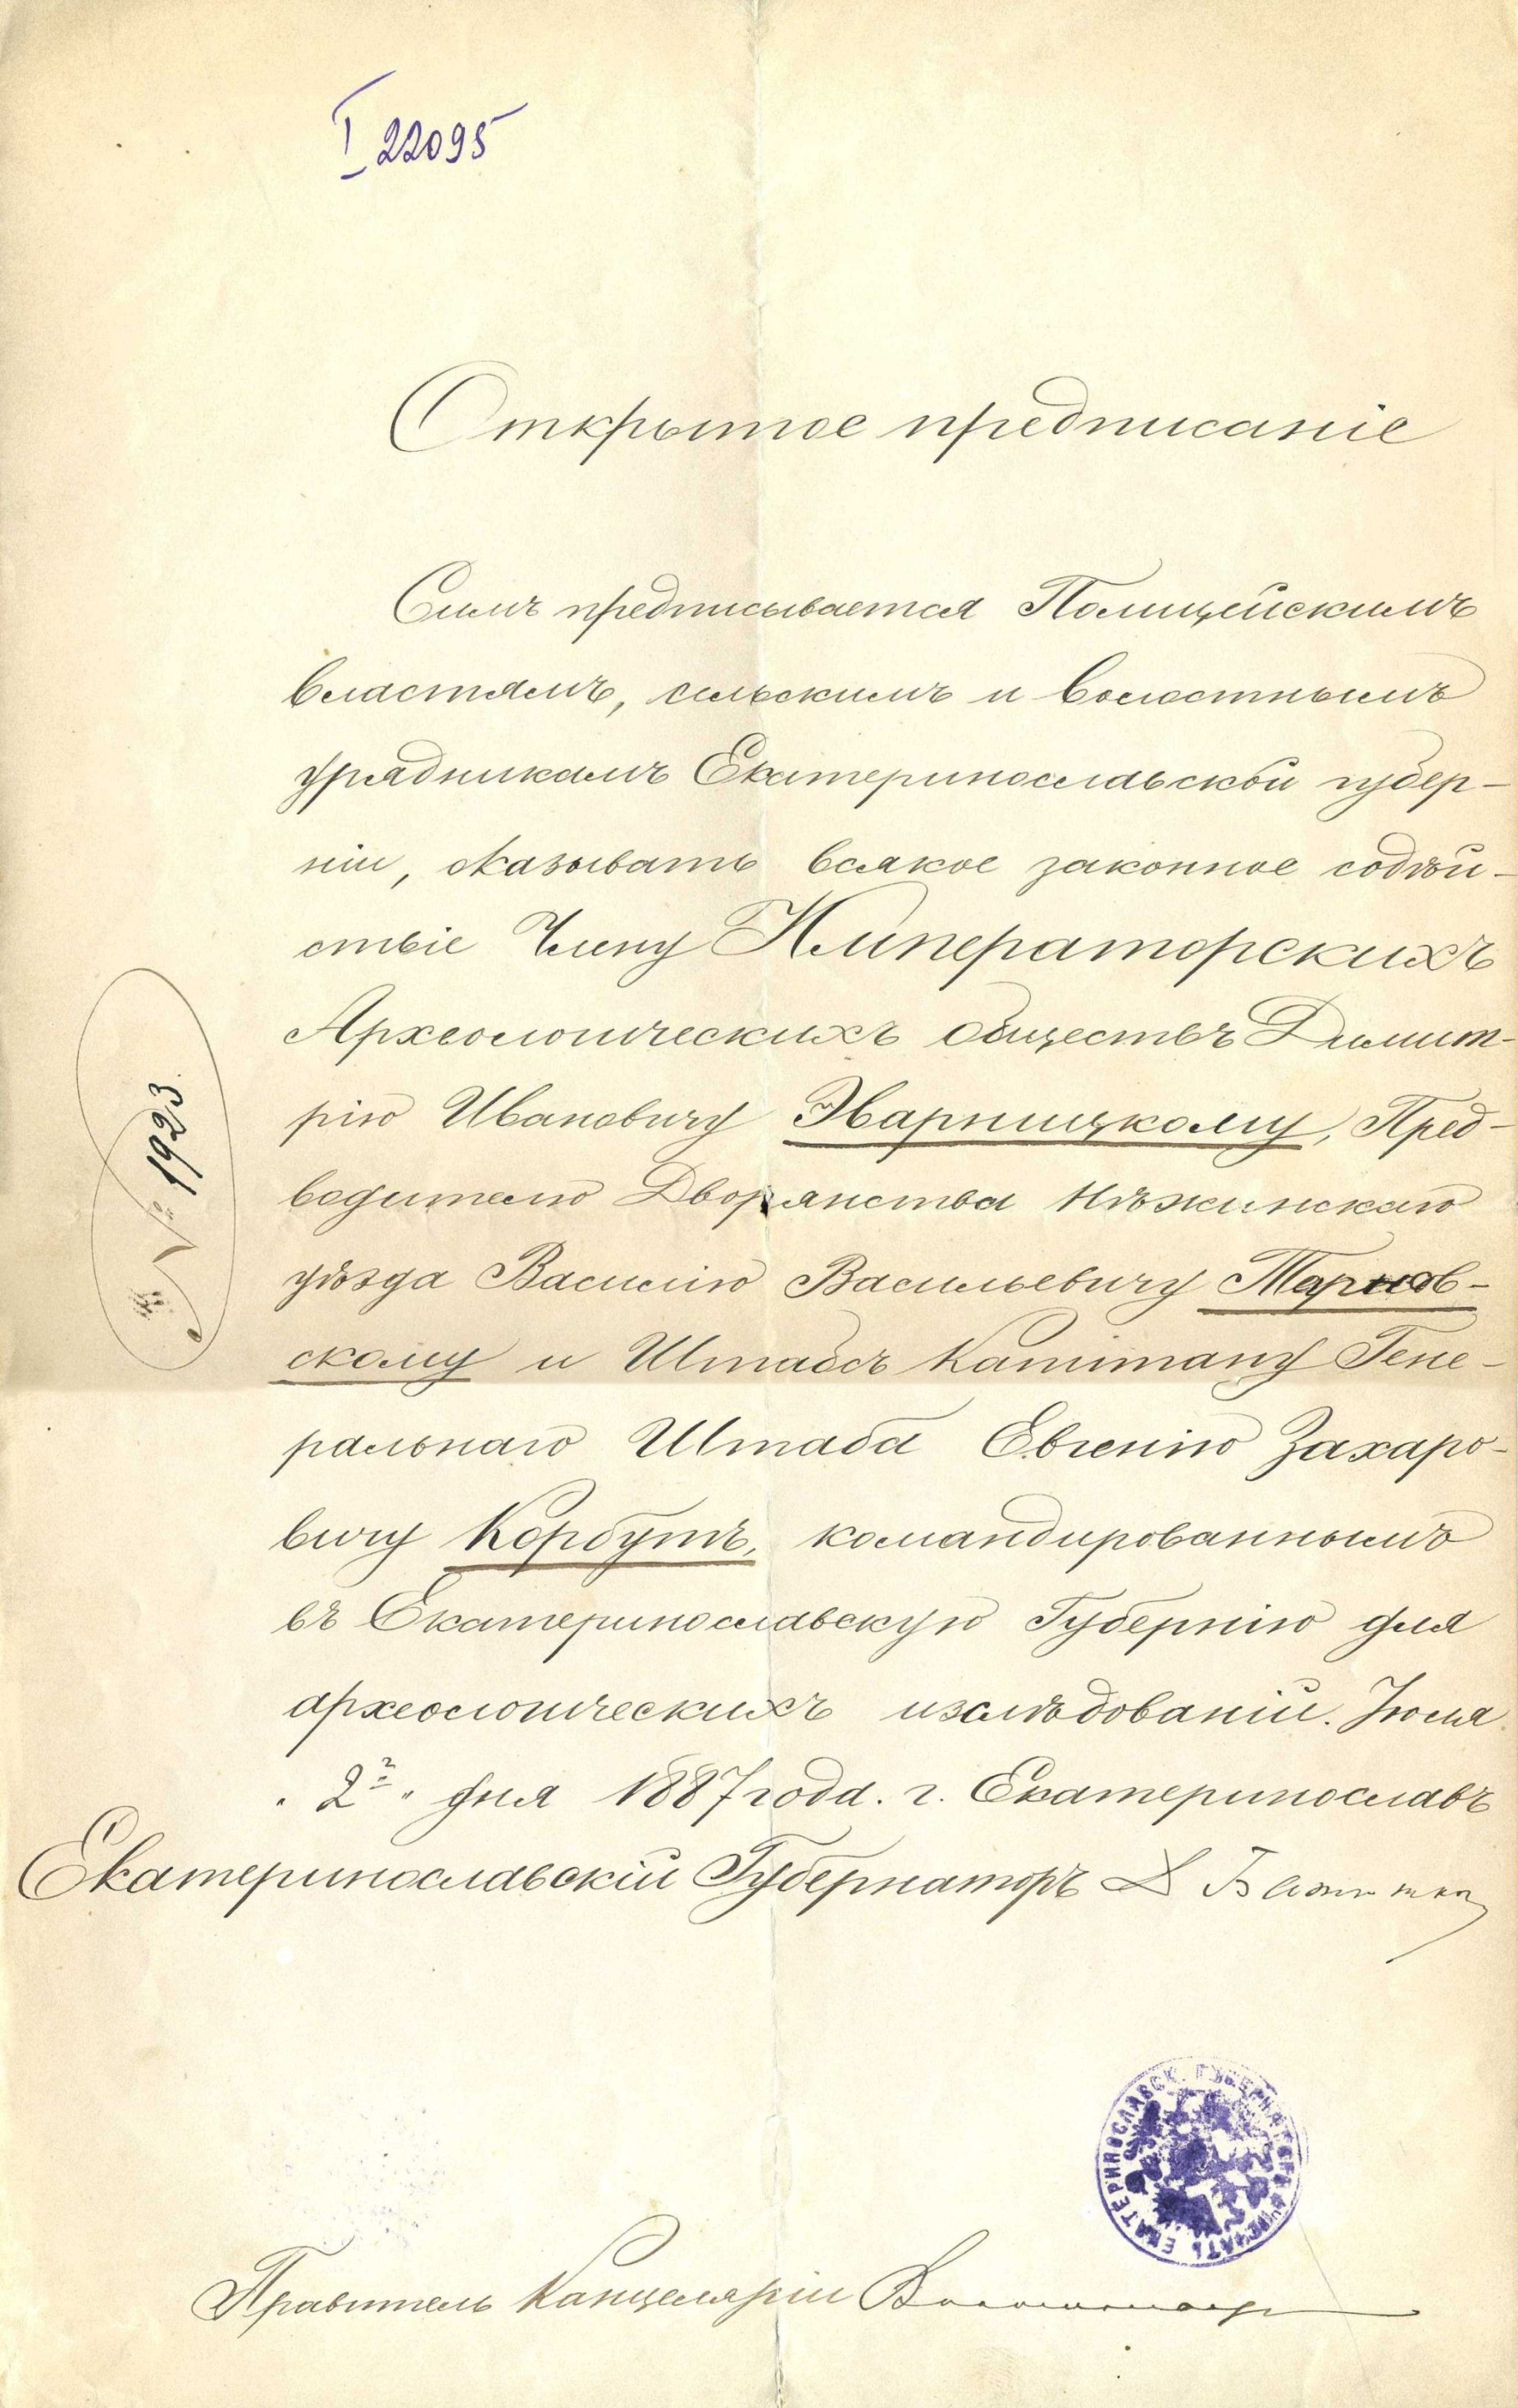 I 22095
Открытое предписаніе
Симъ предписывается Полицейскимъ
властямъ, сельскимъ и волостнымъ
урядникамъ Екатеринославской губер-
ніи, оказывать всякое законное содѣй-
ствіе Члену Императорскихъ
Археологическихъ обществъ Димит-
рію Ивановичу Эварницкому, Пред-
водителю Дворянства Нѣжинскаго
уѣзда Василію Васильевичу Тарнов-
скому и Штабсъ Капитану Гене-
ральнаго Штаба Евгенію Захаро-
вичу Корбутъ, командированнымъ
въ Екатеринославскую Губернію для
археологическихъ изслѣдованій. Іюля
"2г" дня 1887 года. г. Екатеринославъ
Екатеринославскій Губернаторъ Д
№ 1923
ЕКАТЕРИНОСЛАВСК. ГУБЕРНАТОРА ПЕЧАТЬ
Правитель Канцеляріи